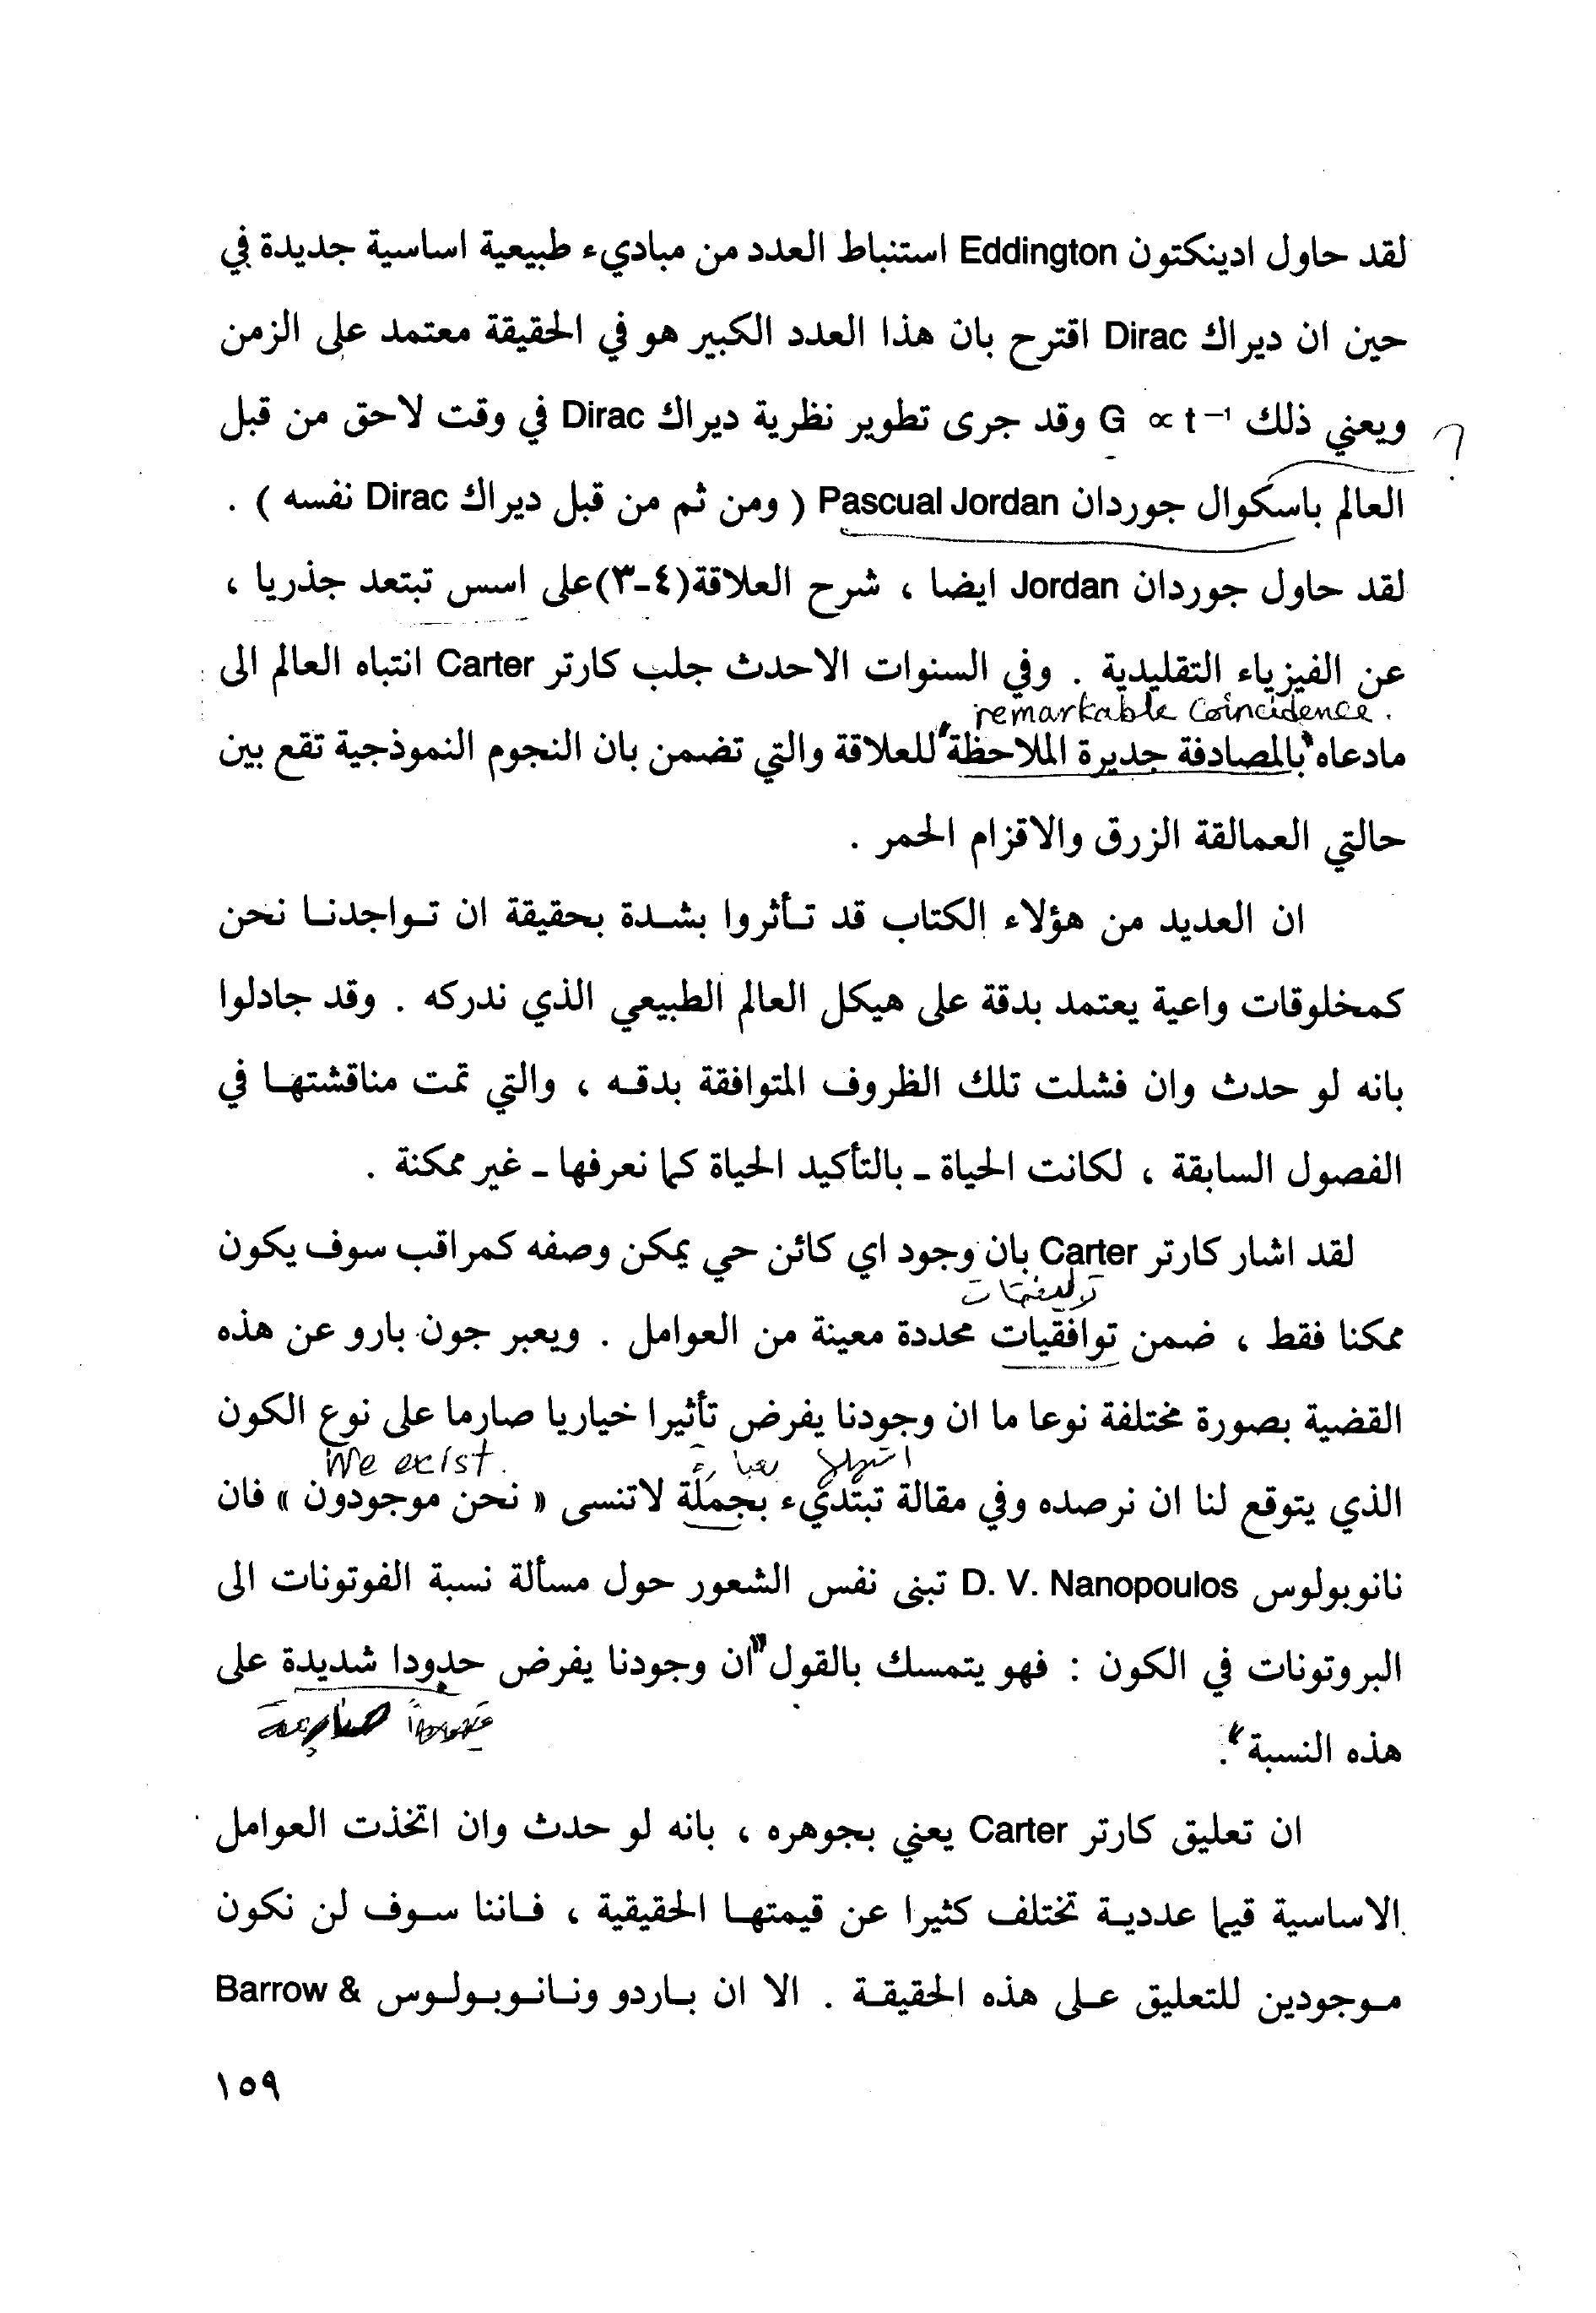 لقد حاول ادينكتون Eddington استنباط العدد من مباديء طبيعية اساسية جديدة في
حين ان ديراك Dirac اقترح بان هذا العدد الكبير هو في الحقيقة معتمد على الزمن
ويعني ذلك G ∝ t⁻¹ وقد جرى تطوير نظرية ديراك Dirac في وقت لاحق من قبل
؟
العالم باسكوال جوردان Pascual Jordan ( ومن ثم من قبل ديراك Dirac نفسه ) .
لقد حاول جوردان Jordan ايضا ، شرح العلاقة (٤-٣) على اسس تبتعد جذريا ،
عن الفيزياء التقليدية . وفي السنوات الاحدث جلب كارتر Carter انتباه العالم الى
remarkable Coincidence.
مادعاه "بالمصادفة جديرة الملاحظة" للعلاقة والتي تضمن بان النجوم النموذجية تقع بين
حالتي العمالقة الزرق والاقزام الحمر .
ان العديد من هؤلاء الكتاب قد تـأثروا بشـدة بحقيقة ان تـواجدنـا نحن
كمخلوقات واعية يعتمد بدقة على هيكل العالم الطبيعي الذي ندركه . وقد جادلوا
بانه لو حدث وان فشلت تلك الظروف المتوافقة بدقـه ، والتي تمت مناقشتهـا في
الفصول السابقة ، لكانت الحياة ـ بالتأكيد الحياة كما نعرفها ـ غير ممكنة .
لقد اشار كارتر Carter بان وجود اي كائن حي يمكن وصفه كمراقب سوف يكون
توليفات
ممكنا فقط ، ضمن توافقيات محددة معينة من العوامل . ويعبر جون بارو عن هذه
القضية بصورة مختلفة نوعا ما ان وجودنا يفرض تأثيرا خياريا صارما على نوع الكون
We exist.
الذي يتوقع لنا ان نرصده وفي مقالة تبتديء بجملة لاتنسى « نحن موجودون » فان
نانوبولوس D. V. Nanopoulos تبنى نفس الشعور حول مسألة نسبة الفوتونات الى
البروتونات في الكون : فهو يتمسك بالقول "ان وجودنا يفرض حدودا شديدة على
هذه النسبة".
ان تعليق كارتر Carter يعني بجوهره ، بانه لو حدث وان اتخذت العوامل
الاساسية قيما عدديـة تختلف كثيرا عن قيمتهـا الحقيقية ، فـاننا سـوف لن نكون
مـوجودين للتعليق عـلى هذه الحقيقـة . الا ان بـاردو ونـانـوبـولـوس Barrow &
١٥٩